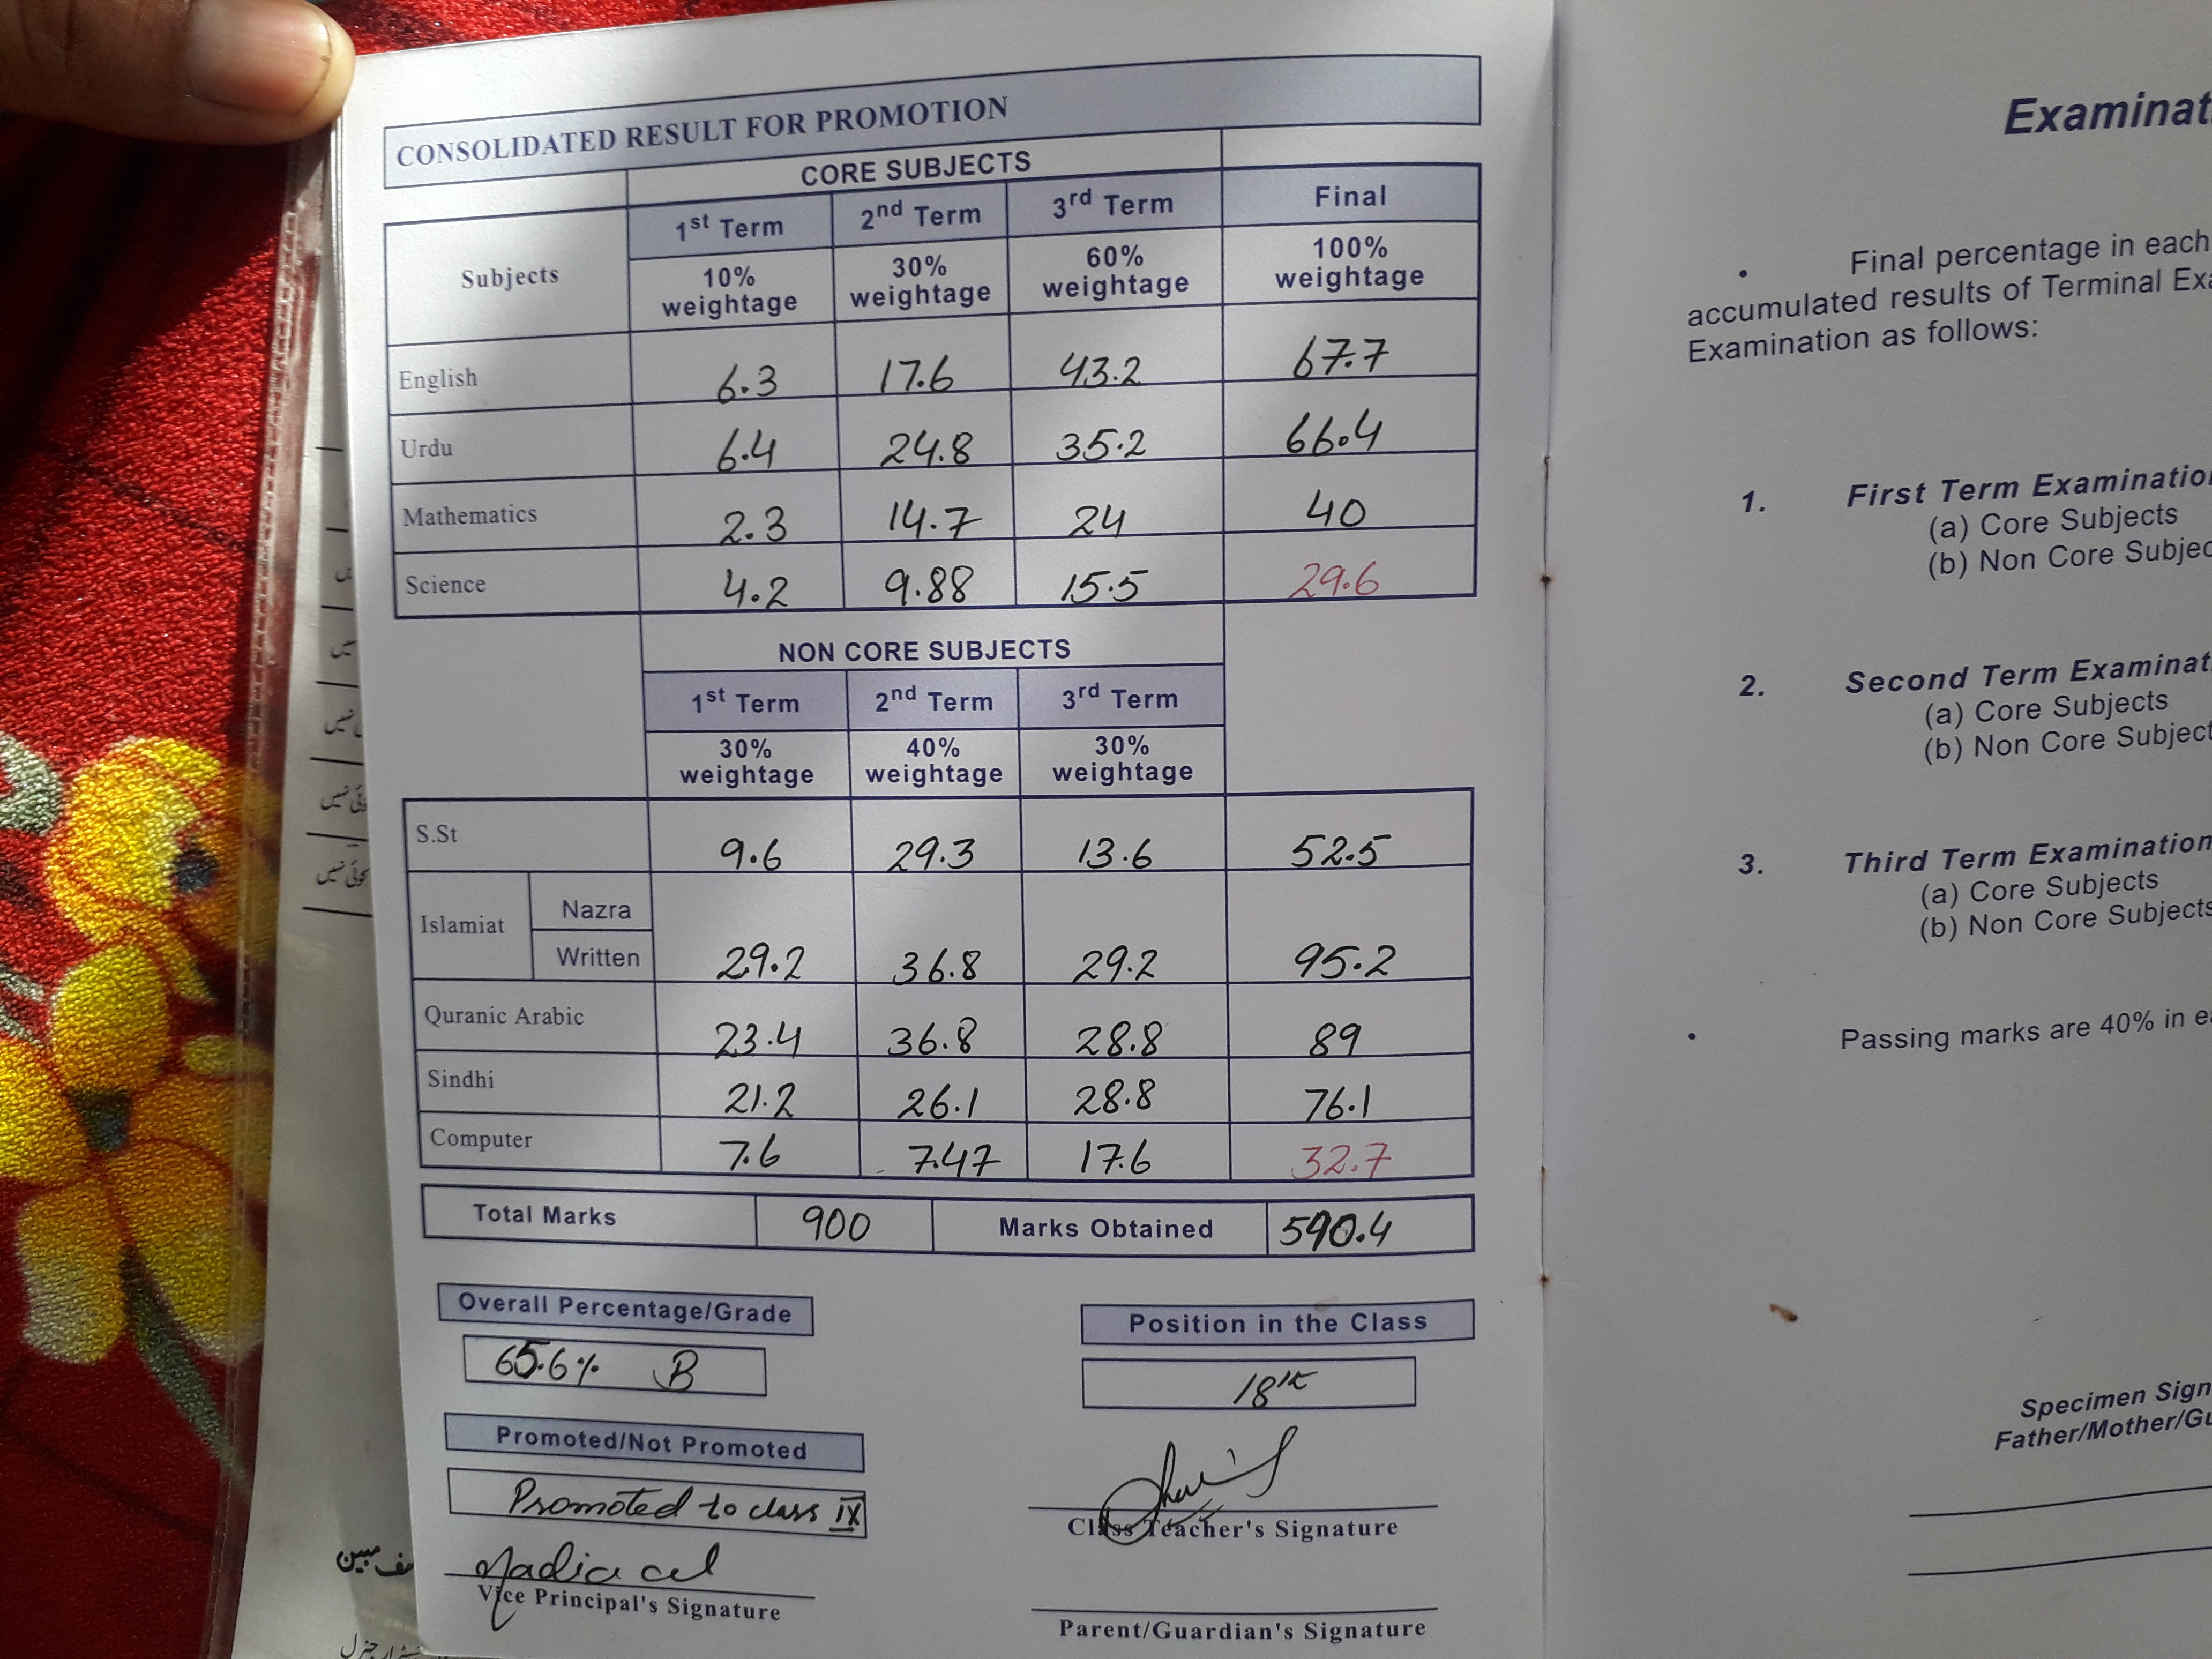 CONSOLIDATED RESULT FOR PROMOTION
CORE SUBJECTS
Subjects 1st Term 2nd Term 3rd Term Final
10% weightage 30% weightage 60% weightage 100% weightage
English 6.3 17.6 43.2 67.7
Urdu 6.4 24.8 35.2 66.4
Mathematics 2.3 14.7 24 40
Science 4.2 9.88 15.5 29.6
NON CORE SUBJECTS
1st Term 2nd Term 3rd Term
30% weightage 40% weightage 30% weightage
S.St 9.6 29.3 13.6 52.5
Islamiat Nazra
Written 29.2 36.8 29.2 95.2
Quranic Arabic 23.4 36.8 28.8 89
Sindhi 21.2 26.1 28.8 76.1
Computer 7.6 7.47 17.6 32.7
Total Marks 900 Marks Obtained 590.4
Overall Percentage/Grade
65.6% B
Position in the Class
18th
Promoted/Not Promoted
Promoted to class IX
Class Teacher's Signature
Nadia
Vice Principal's Signature
Parent/Guardian's Signature
Examinat
• Final percentage in each
accumulated results of Terminal Exa
Examination as follows:
1. First Term Examination
(a) Core Subjects
(b) Non Core Subjec
2. Second Term Examinat
(a) Core Subjects
(b) Non Core Subject
3. Third Term Examination
(a) Core Subjects
(b) Non Core Subjects
• Passing marks are 40% in ea
Specimen Sign
Father/Mother/Gu
نہیں
کوئی نہیں